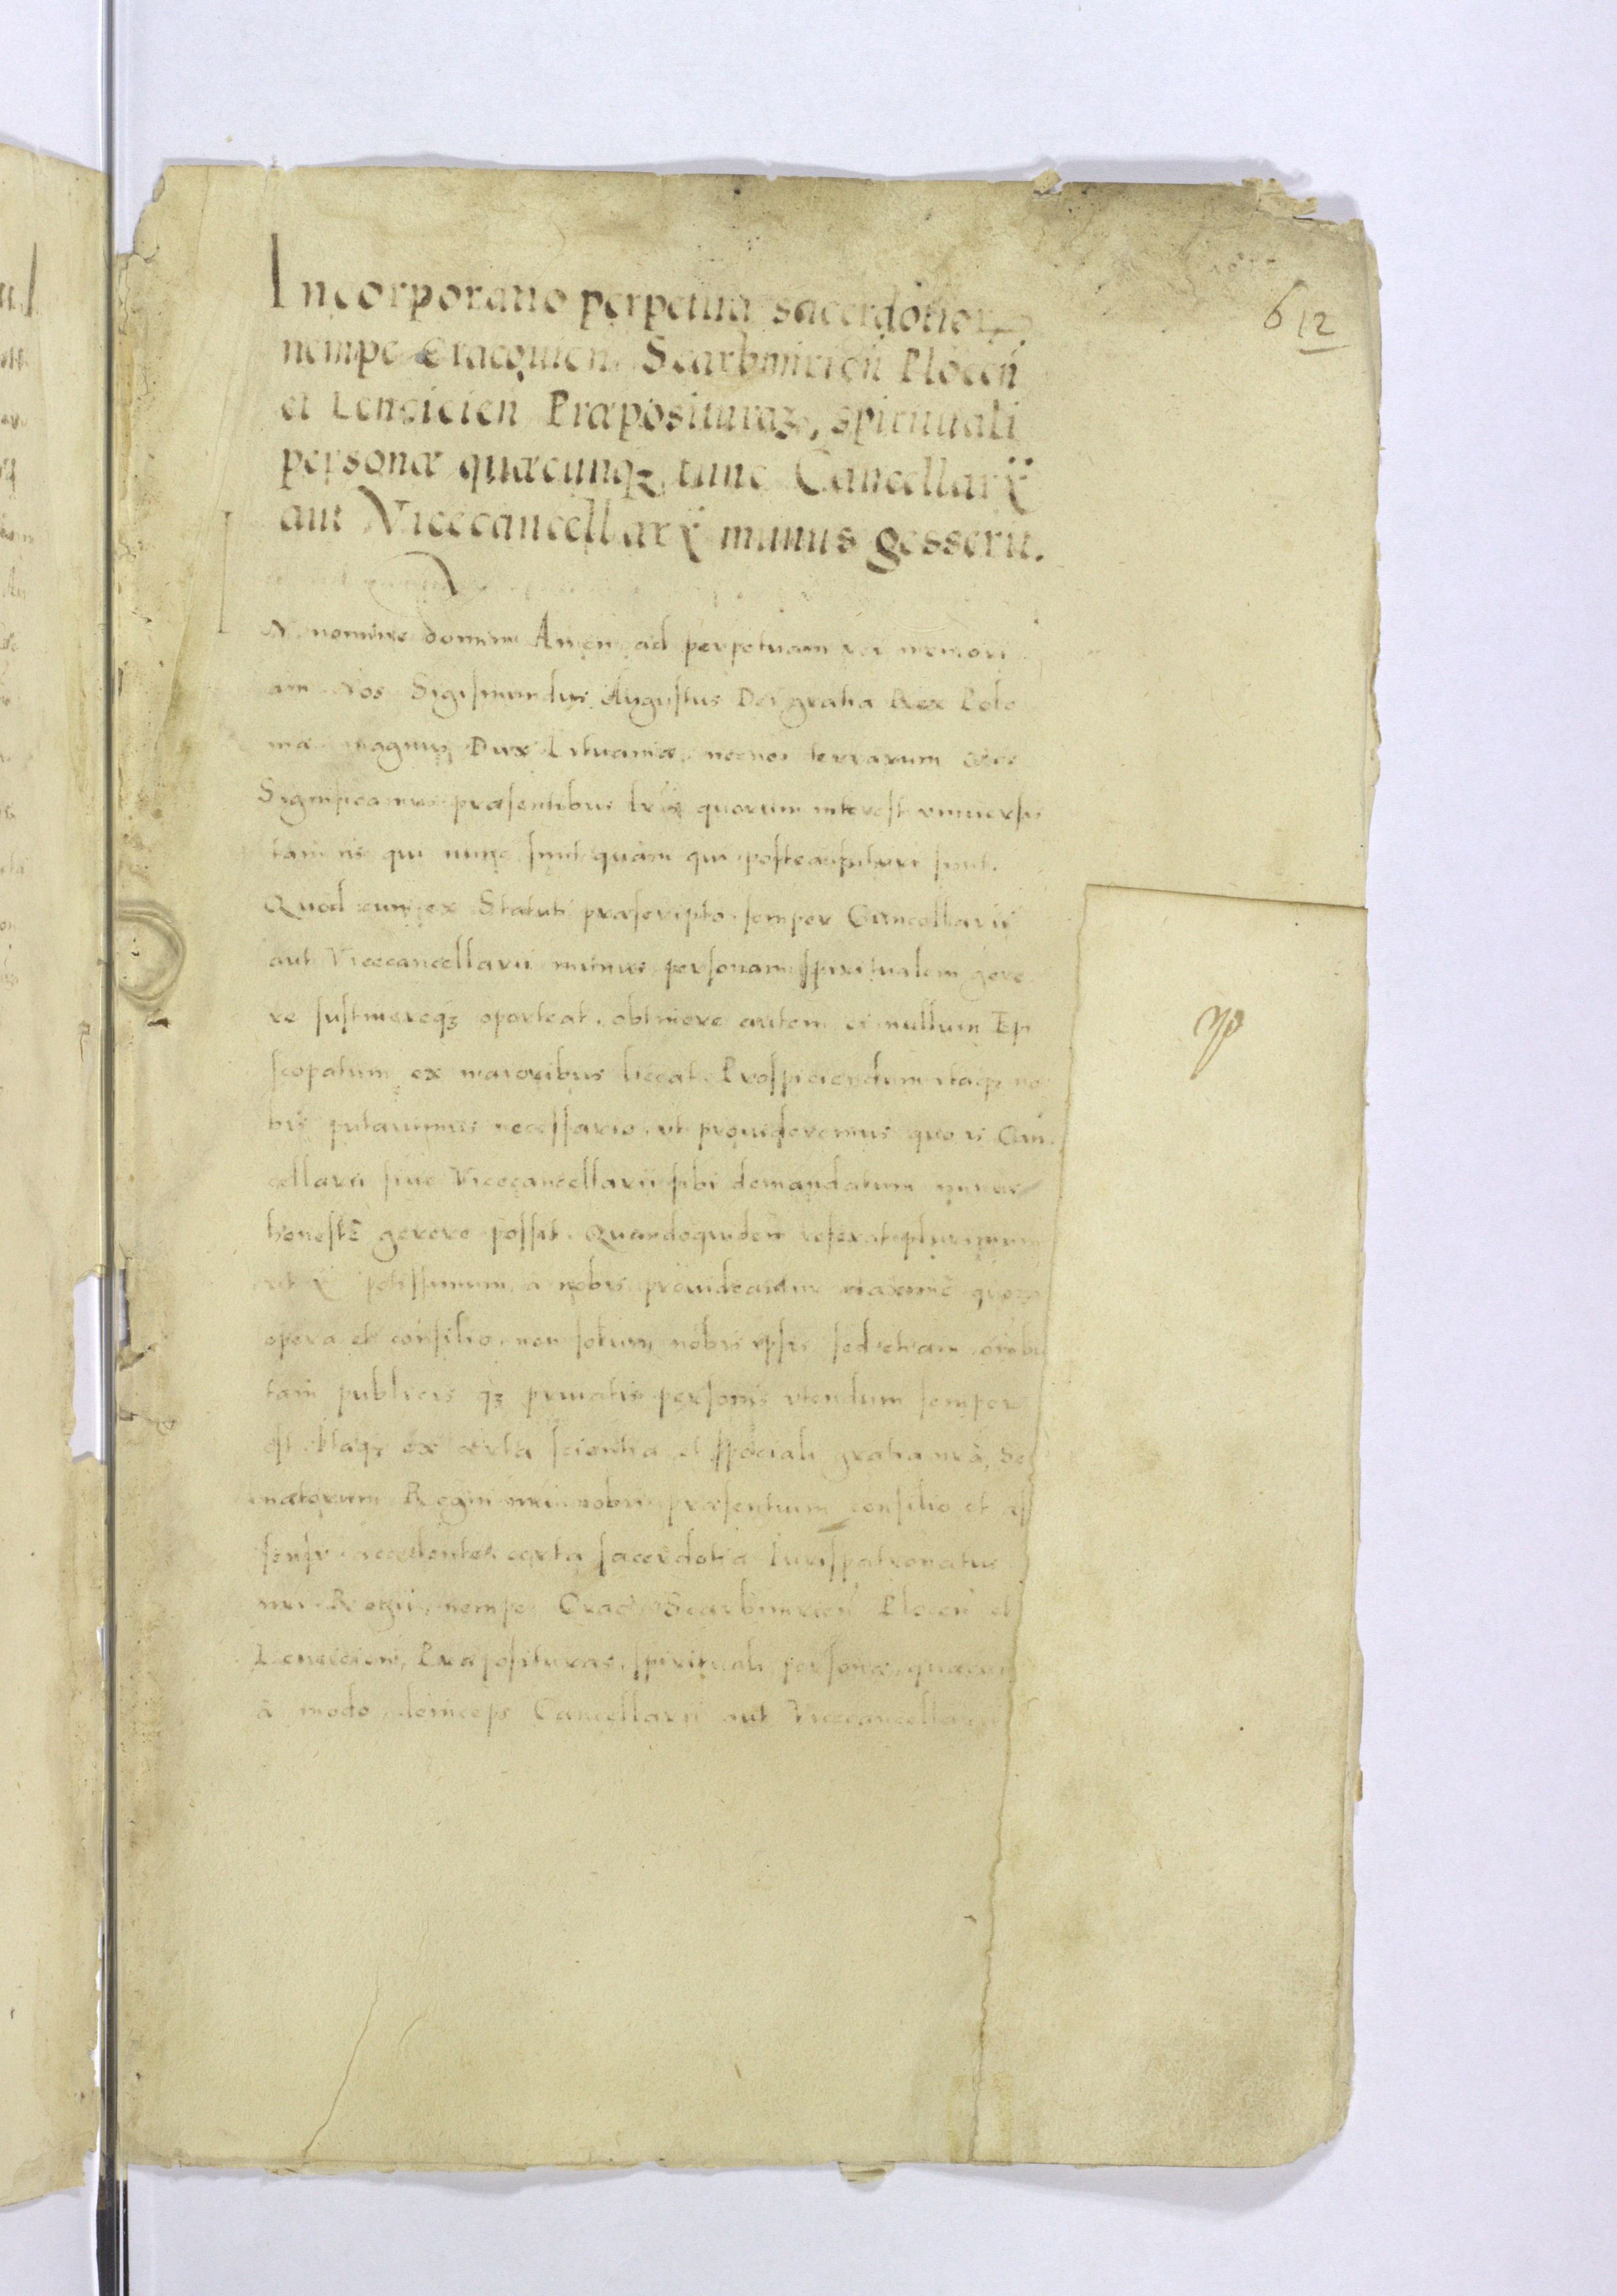 6 12
Incorporatio perpetua sacerdotior
nempe Cracouien Scarbmirien Plocen
et Lencicien Præposituraꝝ, spirituali
personæ quæcunqꝫ tunc Cancellarÿ
aut Vicecancellarÿ munus gesserit.
IN nomine domini Amen ad perpetuam rei memori
am Nos Sigismundus Augustus Dei gratia Rex Polo
niæ magnus Dux Lituaniæ necnon terrarum
Significamus præsentibus lris quorum interest vniuersis
tam iis qui nunc sunt quàm qui postea futuri sunt.
Quod cum ex Statuti præscripto semper Cancellarii
aut Vicecancellarii munus personam spiritualem gere
re sustinereqꝫ oporteat, obtinere autem ei nullum Epi
scopatum ex maioribus liceat. Prospiciendum itaqꝫ no
bis putauimus necessario, vt prouideremus quo is Can
cellarii siue Vicecancellarii sibi demandatum munus
honestè gerere possit. Quandoquidem referat plurimum
potissimum à nobis prouideatur maximè
opera et consilio non solum nobis ipsis sed etiam omnibus
tam publicis qꝫ priuatis personis vtendum semper
est Itaqꝫ ex certa scientia et speciali gratia nrâ, Se
natorum Regni nri nobis præsentium consilio et as
sensu accedente certa sacerdotia Iurispatronatus
nri Regii nempe Crac Scarbimirien Plocen et
Lencicien Præposituras, spirituali personæ quæcun
à modo deinceps Cancellarii aut Vicecancellarii